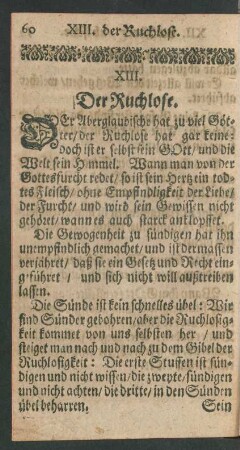 60 XIII. der Ruchlose.
XIII.
Der Ruchlose.
DEr Aberglaubische hat zu viel Göt-
ter / der Ruchlose hat gar keine:
doch ist er selbst sein GOtt / und die
Welt sein Himmel. Wann man von der
Gottesfurcht redet / so ist sein Hertz ein tod-
tes Fleisch / ohne Empfindligkeit der Liebe /
der Furcht / und wird sein Gewissen nicht
gehöret / wann es auch starck anklopffet.
Die Gewogenheit zu sündigen hat ihn
unempfindlich gemachet / und ist dermassen
verjähret / daß sie ein Gesetz und Recht ein-
geführet / und sich nicht will außtreiben
lassen.
Die Sünde ist kein schnelles übel: Wir
sind Sünder gebohren / aber die Ruchlosig-
keit kommet von uns selbsten her / und
steiget man nach und nach zu dem Gibel der
Ruchlosigkeit: Die erste Stuffen ist sün-
digen und nicht wissen / die zweyte / sündigen
und nicht achten / die dritte / in den Sünden
übel beharren. Sein